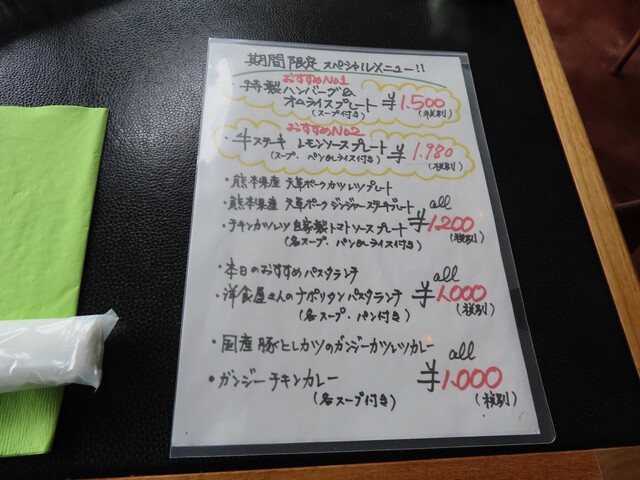 期間限定 スペシャルメニュー!!
おすすめNo.1
・特製ハンバーグ&
オムライスプレート ¥1,500
(スープ付き) (税別)
おすすめNo.2
・牛ステーキ レモンソースプレート ¥1,980
(スープ、パンorライス付き) (税別)
・熊本県産 天草ポークカツレツプレート
・熊本県産 天草ポークジンジャーステーキプレート all
・チキンカツレツ 自家製トマトソースプレート ¥1,200
(各スープ、パンorライス付き) (税別)
・本日のおすすめパスタランチ all
・洋食屋さんのナポリタンパスタランチ ¥1,000
(各スープ・パン付き) (税別)
・国産豚ヒレカツのガンジーカツレツカレー all
・ガンジーチキンカレー ¥1,000
(各スープ付き) (税別)